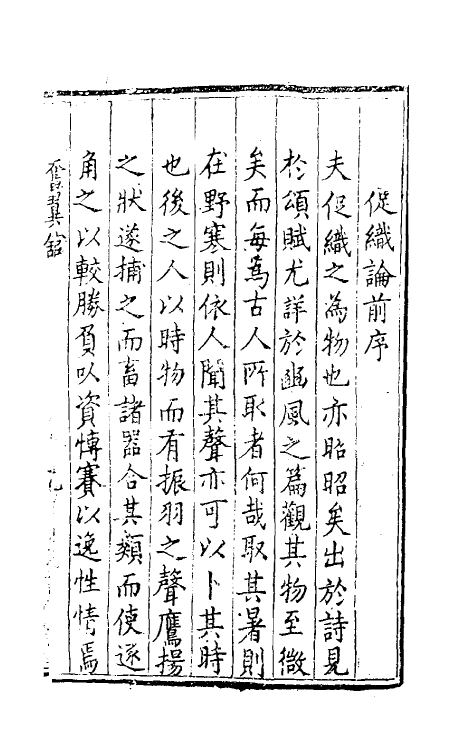 促織論前序
夫促織之為物也亦昭昭矣出於詩見
於頌賦尤詳於豳風之篇觀其物至微
矣而每為古人所取者何哉取其暑則
在野寒則依人聞其聲亦可以卜其時
也後之人以時物而有振羽之聲鷹揚
之狀遂捕之而畜諸器合其類而使遂
角之以較勝負以資博賽以逸性情焉
翼館
九